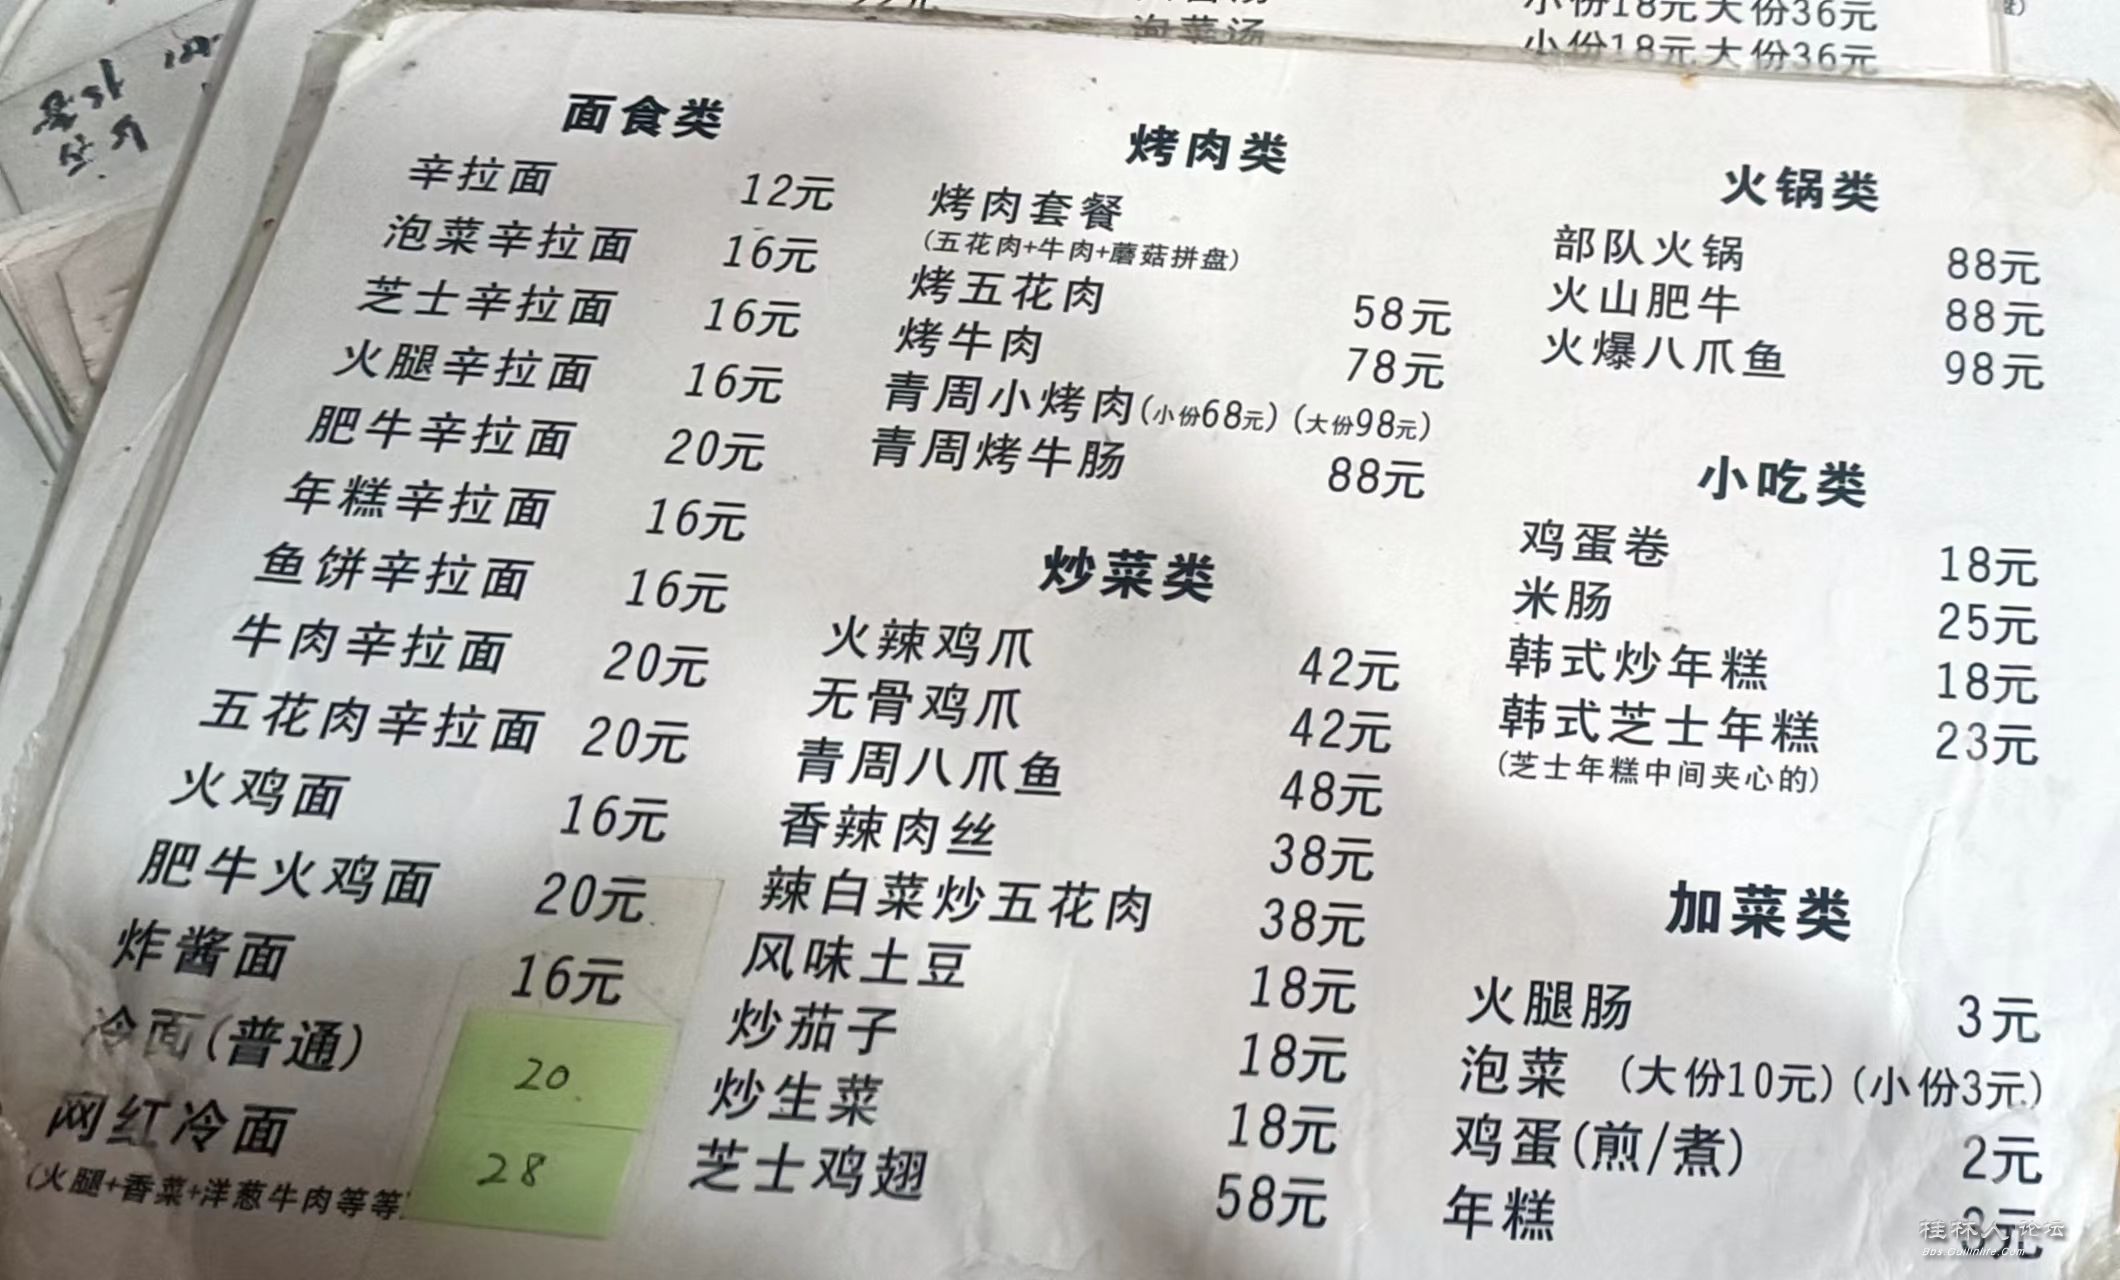 泡菜汤
小份18元大份36元
小份18元大份36元
面食类
辛拉面 12元
泡菜辛拉面 16元
芝士辛拉面 16元
火腿辛拉面 16元
肥牛辛拉面 20元
年糕辛拉面 16元
鱼饼辛拉面 16元
牛肉辛拉面 20元
五花肉辛拉面 20元
火鸡面 16元
肥牛火鸡面 20元
炸酱面 16元
冷面(普通) 20
网红冷面 28
(火腿+香菜+洋葱牛肉等等
烤肉类
烤肉套餐
(五花肉+牛肉+蘑菇拼盘)
烤五花肉 58元
烤牛肉 78元
青周小烤肉(小份68元)(大份98元)
青周烤牛肠 88元
炒菜类
火辣鸡爪 42元
无骨鸡爪 42元
青周八爪鱼 48元
香辣肉丝 38元
辣白菜炒五花肉 38元
风味土豆 18元
炒茄子 18元
炒生菜 18元
芝士鸡翅 58元
火锅类
部队火锅 88元
火山肥牛 88元
火爆八爪鱼 98元
小吃类
鸡蛋卷 18元
米肠 25元
韩式炒年糕 18元
韩式芝士年糕 23元
(芝士年糕中间夹心的)
加菜类
火腿肠 3元
泡菜 (大份10元)(小份3元)
鸡蛋(煎/煮) 2元
年糕 3元
桂林人论坛
Bbs.Guilinlife.Com